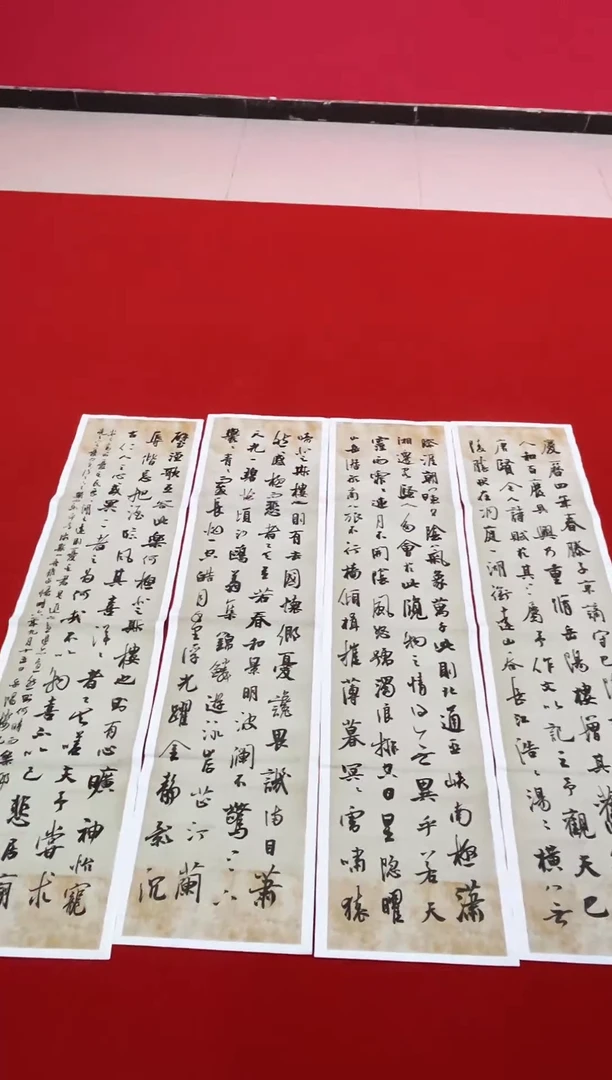 慶曆四年春滕子京謫守巴
人和百廢具興乃重脩岳陽樓增其舊
唐賢今人詩賦於其上屬予作文以記之予觀夫巴
陵勝狀在洞庭一湖銜遠山吞長江浩〻湯〻橫無
際涯朝暉夕陰氣象萬千此則北通巫峽南極瀟
湘遷客騷人多會於此覽物之情得無異乎若夫
霪雨霏〻連月不開陰風怒號濁浪排空日星隱曜
山岳潛形商旅不行檣傾楫摧薄暮冥〻虎嘯猿
啼登斯樓也則有去國懷鄉憂讒畏譏滿目蕭
然感極而悲者矣至若春和景明波瀾不驚上下
天光一碧萬頃沙鷗翔集錦鱗游泳岸芷汀蘭
鬱〻青〻而或長煙一空皓月千里浮光躍金靜影沉
璧漁歌互答此樂何極登斯樓也則有心曠神怡寵
辱偕忘把酒臨風其喜洋〻者矣嗟夫予嘗求
古仁人之心或異二者之為何哉不以物喜不以己悲居廟